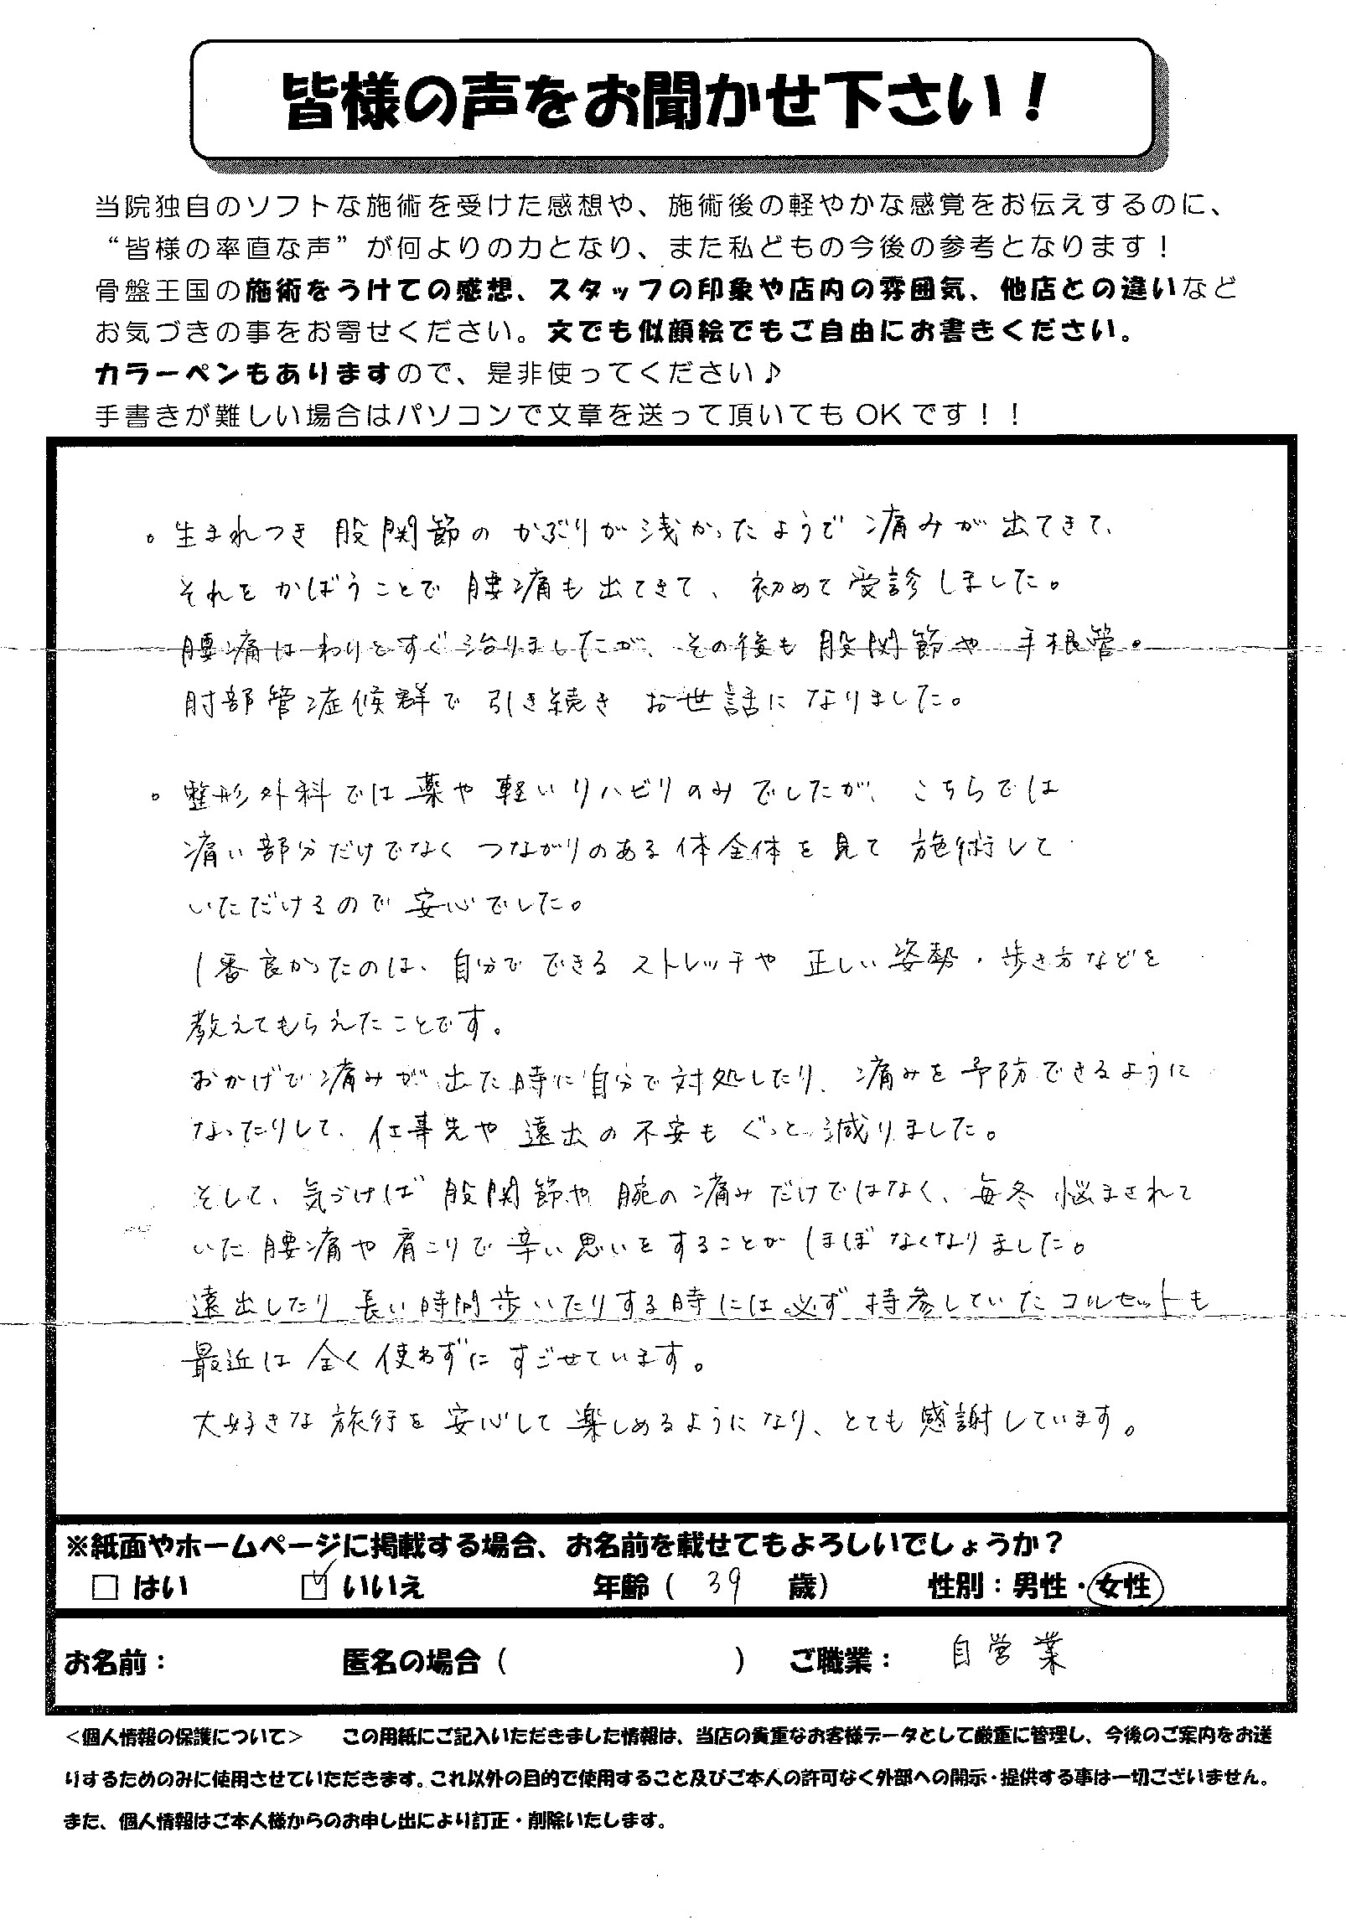 皆様の声をお聞かせ下さい！
当院独自のソフトな施術を受けた感想や、施術後の軽やかな感覚をお伝えするのに、
“皆様の率直な声”が何よりの力となり、また私どもの今後の参考となります！
骨盤王国の施術をうけての感想、スタッフの印象や店内の雰囲気、他店との違いなど
お気づきの事をお寄せください。文でも似顔絵でもご自由にお書きください。
カラーペンもありますので、是非使ってください♪
手書きが難しい場合はパソコンで文章を送って頂いてもOKです！！
。生まれつき股関節のかぶりが浅かったようで痛みが出てきて、
それをかばうことで腰痛も出てきて、初めて受診しました。
腰痛はわりとすぐ治りましたが、その後も股関節や手根管・
肘部管症候群で引き続きお世話になりました。
。整形外科では薬や軽いリハビリのみでしたが、こちらでは
痛い部分だけでなくつながりのある体全体を見て施術して
いただけるので安心でした。
1番良かったのは、自分でできるストレッチや正しい姿勢・歩き方などを
教えてもらえたことです。
おかげで痛みが出た時に自分で対処したり、痛みを予防できるように
なったりして、仕事先や遠出の不安もぐっと減りました。
そして、気づけば股関節や腕の痛みだけではなく、毎冬悩まされて
いた腰痛や肩こりで辛い思いをすることがほぼなくなりました。
遠出したり長い時間歩いたりする時には必ず持参していたコルセットも
最近は全く使わずにすごせています。
大好きな旅行を安心して楽しめるようになり、とても感謝しています。
※紙面やホームページに掲載する場合、お名前を載せてもよろしいでしょうか？
□ はい ☑ いいえ 年齢（ 39 歳） 性別：男性・女性
お名前： 匿名の場合（ ） ご職業： 自営業
＜個人情報の保護について＞ この用紙にご記入いただきました情報は、当店の貴重なお客様データとして厳重に管理し、今後のご案内をお送
りするためのみに使用させていただきます。これ以外の目的で使用すること及びご本人の許可なく外部への開示・提供する事は一切ございません。
また、個人情報はご本人様からのお申し出により訂正・削除いたします。